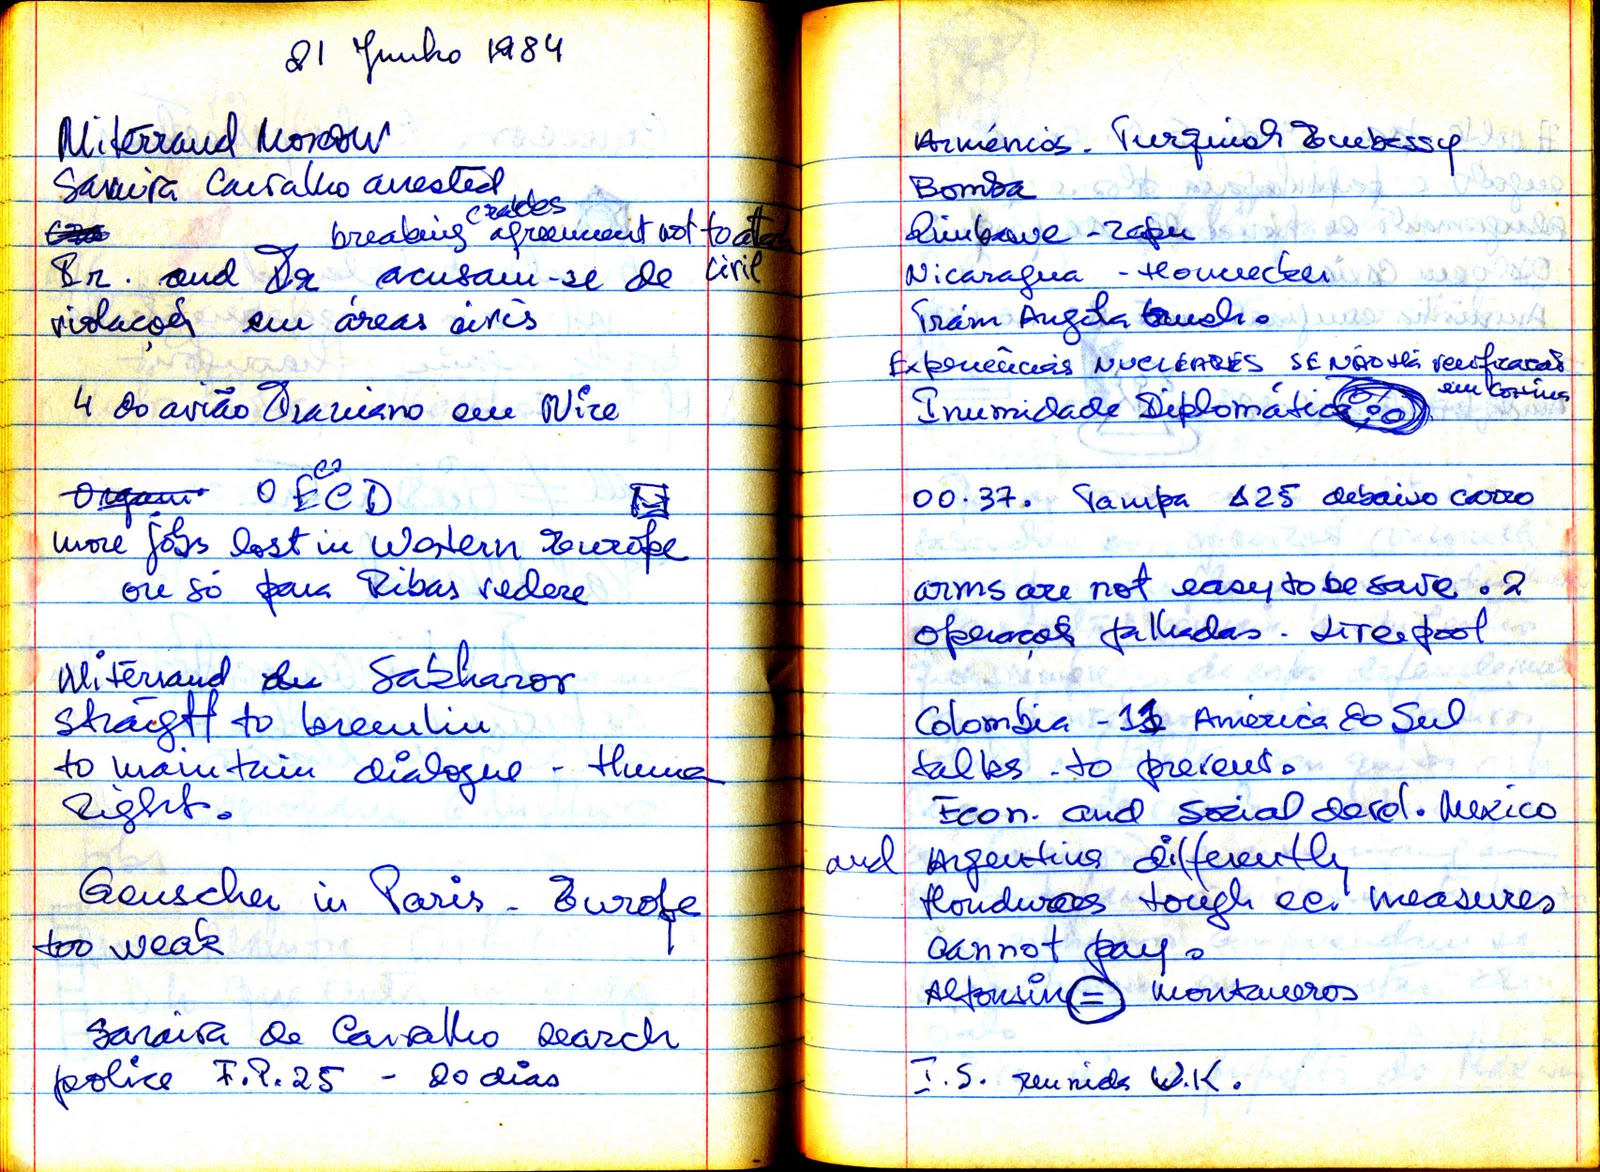 21 Junho 1984
Miterrand Moscow
Saraiva Carvalho arrested
crades
breaking agreement not to attack
Br. and Ir acusam-se de civil
violações em áreas civis
4 do avião Iraniano em Nice
OECD
more jobs lost in Western Europe
ou só para Ribas vedere
Miterrand Sakharov
straigtt to kremlin
to maintain dialogue - Human
Right.
Genscher in Paris - Europe
too weak
Saraiva de Carvalho search
police F.P.25 - 20 dias
Arménios. Turquish Embassy
Bomba
Zimbawe - zapu
Nicaragua - Honnecker
Angola
Experiências NUCLEARES SE NÃO HÁ verificação
em
Imunidade Diplomática
00.37. Tampa 125 debaixo carro
arms are not easy to be save. 2
operações falhadas. Liverpool
Colombia - 11 America do Sul
talks - to prevent.
Econ. and Social Mexico
and Argentina differently
Honduras tough ec. measures
cannot pay.
Alfonsin = montaneros
I.S. reunida W.K.